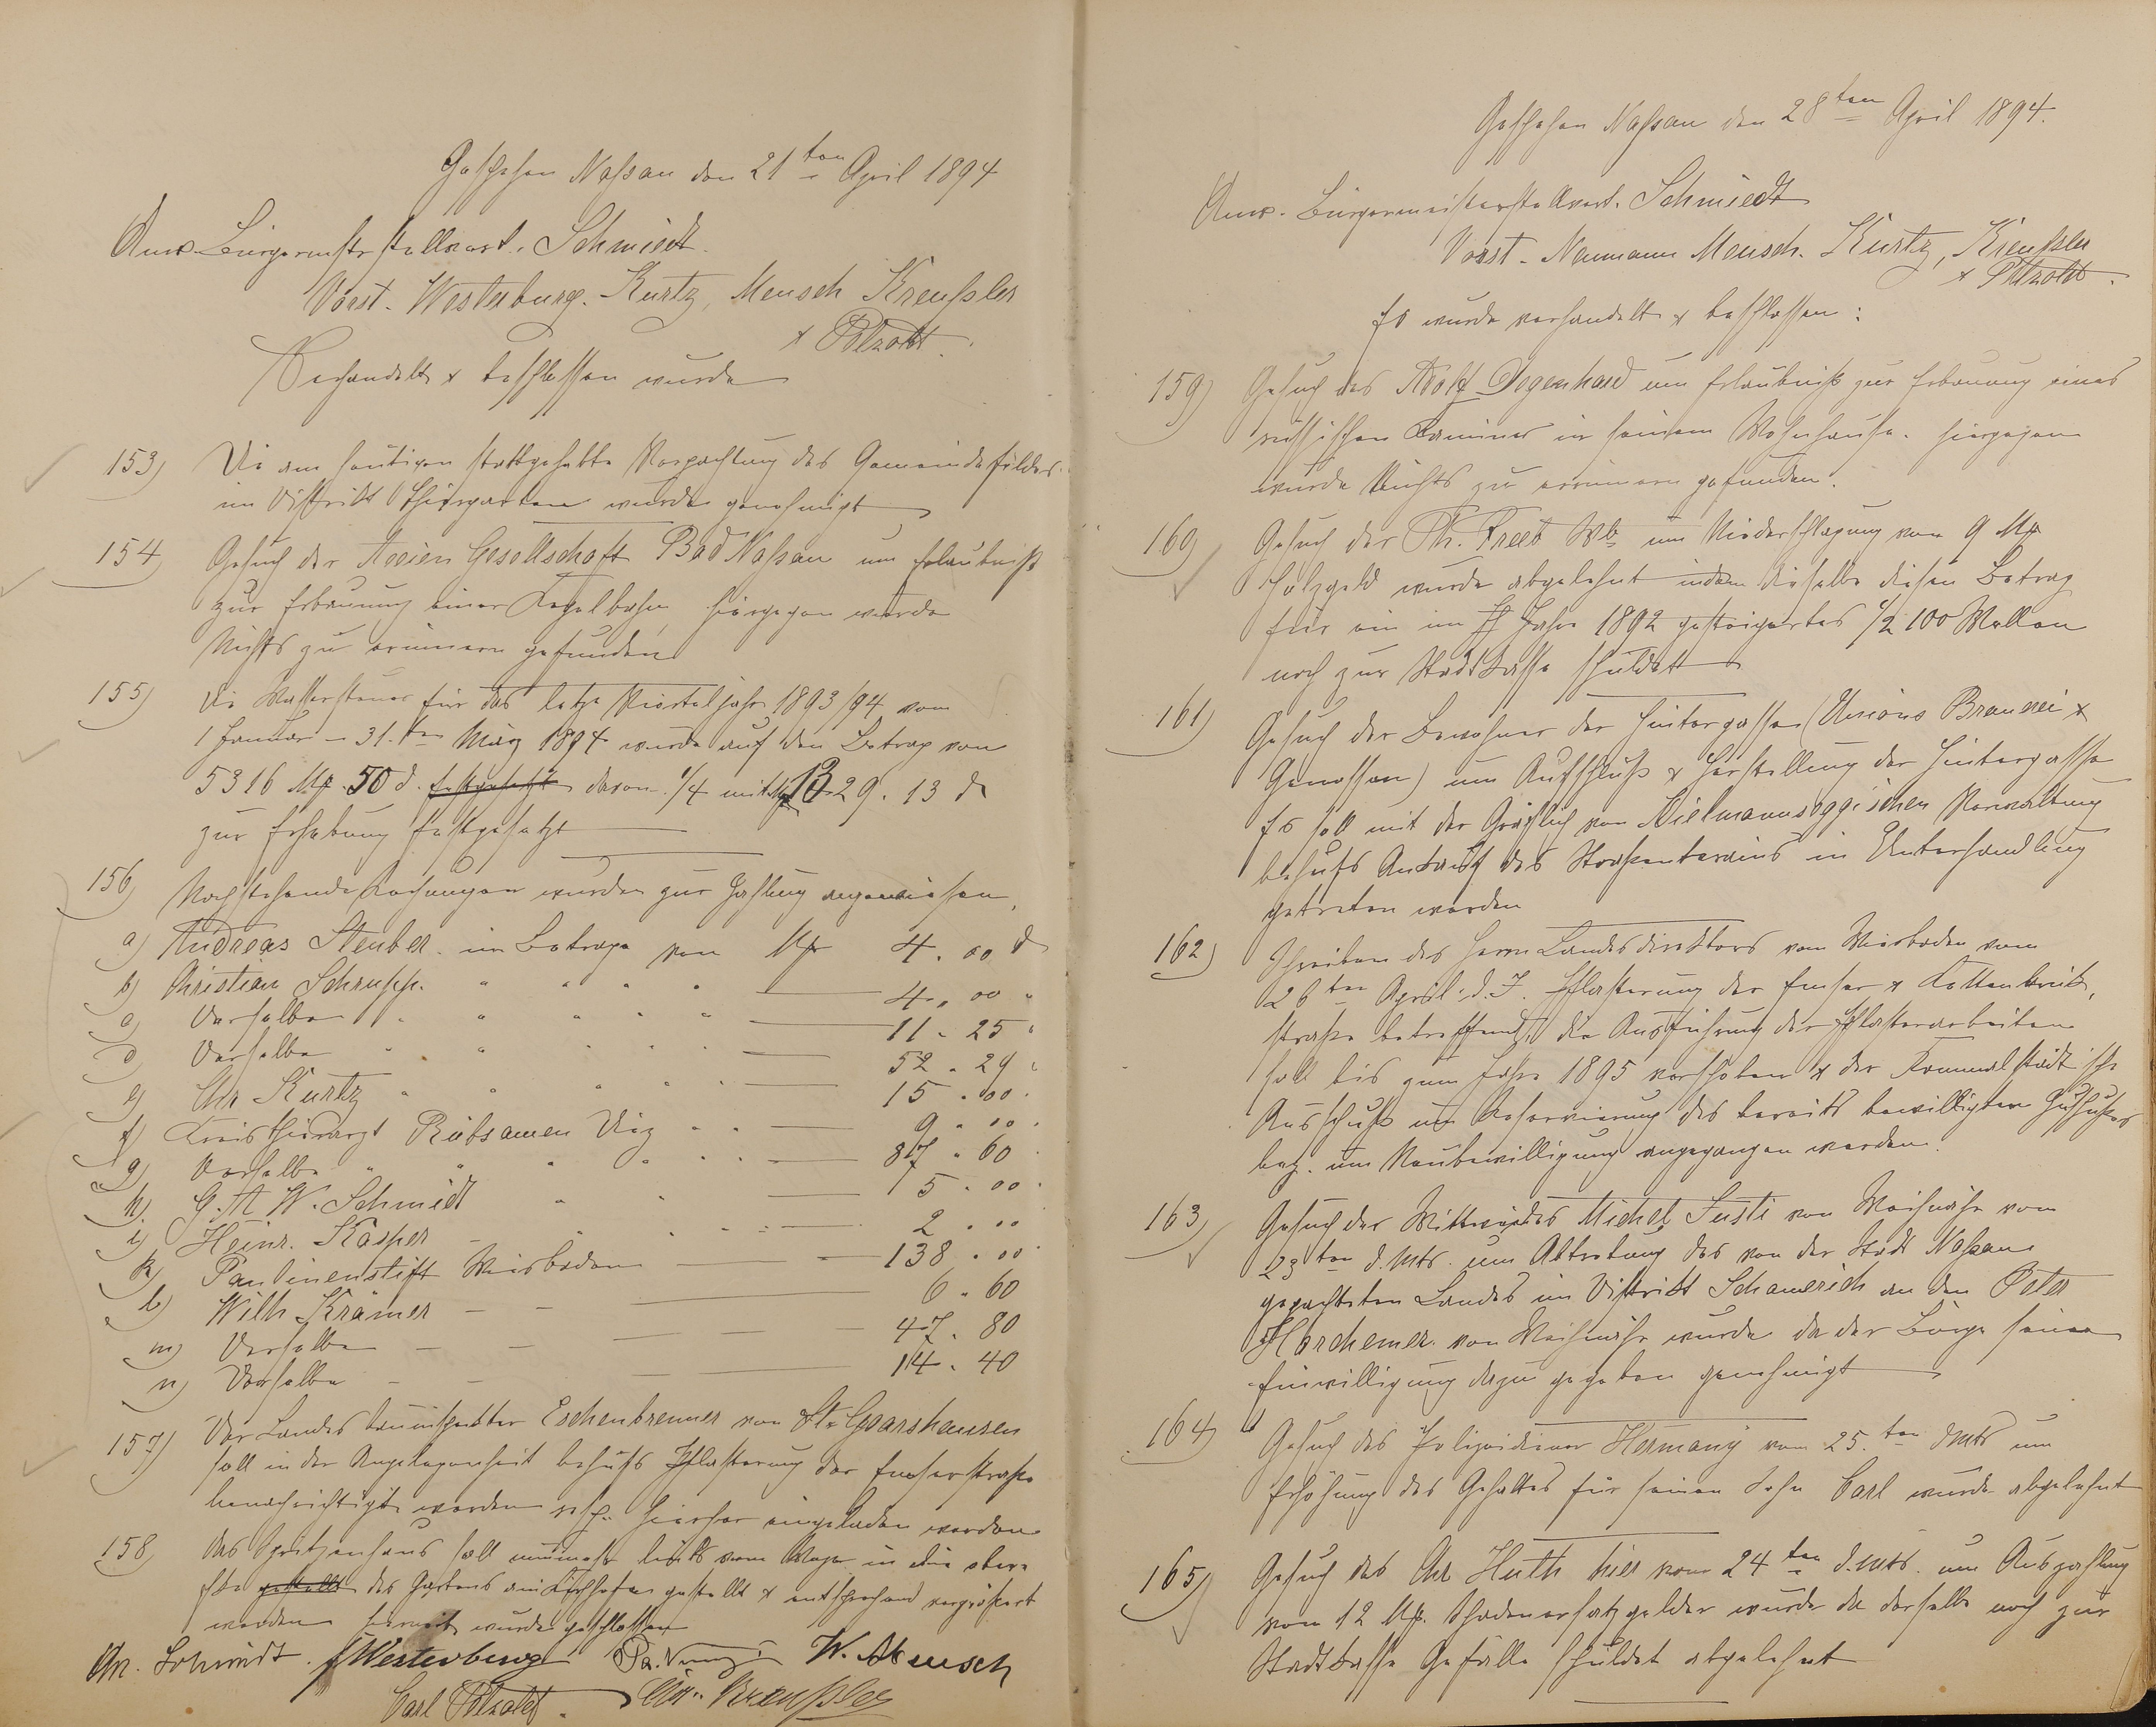 Geschehen Nassau den 21ten April 1894
Anw. Bürgermstrstellvert. Schmidt.
Vorst. Westerburg. Kurtz, Mensch Kreußler
& Pötzoldt.
Verhandelt & beschlossen wurde
153) Die am heutigen stattgehabte Verpachtung des Gemeindefeldes
im Distrikt Thiergarten wurde genehmigt
154) Gesuch der Actien Gesellschaft Bad Nassau um Erlaubniß
zur Erbauung einer Kegelbahn, hiergegen wurde
Nichts zu erinnern gefunden
155) Die Wassersteuer für das letzte Vierteljahr 1893/94 vom
1 Januar – 31.ten März 1894 wurde auf den Betrag von
5316 Mk. 50 d. festgesetzt davon 1/4 mit Mk 1329. 13 d
zur Erhebung festgesetzt
156) Nachstehende Rechnungen wurden zur Zahlung angewiesen,
a) Andreas Steuber im Betrage von Mk 4. 00 d
b) Christian Schrupp. " " " " 4. 00 "
c) Derselbe " " " " " 11. 25 "
d) Derselbe " " " " " 52. 29 "
e) Chr Kurtz " " " " " 15. 00 "
f) Kreisthierarzt Rübsamen Diez " " 9. 00 "
g) Derselbe " " " " " " 87. 60 "
h) G. A W. Schmidt " " 5. 00 "
i) Heinr. Kasper – " " " 2. 00
k) Paulinenstift Wiesbaden 138. 00
l) Wilh Krämer – – 6. 60
m) Derselbe – – 47. 80
n) Derselbe – – 14. 40
157) Der Landesbauinspektor Eschenbrenner von St. Goarshausen
soll in der Angelegenheit behufs Pflasterung der Emserstraße
benachrichtigt werden resp. hierher eingeladen werden
158) das Spritzenhaus soll nunmehr links vom Wege in die obere
Ecke gestellt des Gartens am Kirchhofe gestellt & entsprechend vergrößert
werden hiermit wurde geschlossen
Chr. Schmidt. Westerburg W. Mensch
Carl Pötzoldt. Chr. Kreußler
Geschehen Nassau den 28ten April 1894.
Anw. Bürgermeisterstellvert. Schmidt
Vorst. Naumann Mensch. Kurtz, Kreußler
& Pötzoldt.
Es wurde verhandelt & beschlossen:
159) Gesuch des Adolf Degenhard um Erlaubniß zur Erbauung eines
russischen Kamines in seinem Wohnhause. hiergegen
wurde Nichts zu erinnern gefunden.
160) Gesuch der Ph. Freeb Wb um Niederschlagung von 9 Mk
Holzgeld wurde abgelehnt indem dieselbe diesen Betrag
für ein im Jahre 1892 gesteigertes 1/2 100 Wellen
noch zur Stadtkasse schuldet
161) Gesuch der Bewohner der Hintergasse (Unions Brauerei &
Genossen) um Aufschluß & Herstellung der Hintergasse
Es soll mit der Gräflich von Kielmannseggischen Verwaltung
behufs Ankauf des Straßenterrains in Unterhandlung
getreten werden
162) Schreiben des Herrn Landesdirektors von Wiesbaden vom
26ten April d. J. Pflasterung der Emser & Kettenbrück,
straße betreffend, die Ausführung der Pflasterarbeiten
soll bis zum Jahre 1895 verschoben & der Kommunalständische
Ausschuß um Reservierung des bereits bewilligten Zuschusses
bez. um Neubewilligung angegangen werden.
163) Gesuch der Wittwe des Michel Justi von Weinähr vom
23ten d. Mts. um Abtretung des von der Stadt Nassau
gepachteten Landes im Distrikt Schamerich an den Peter
Horchemer von Weinähr wurde da der Bürge seine
Einwilligung dazu gegeben genehmigt
164) Gesuch des Polizeidiener Hermany vom 25.ten d Mts um
Erhöhung des Gehaltes für seinen Sohn Carl wurde abgelehnt
165) Gesuch des Chr Huth hier vom 24ten d. Mts. um Auszahlung
von 12 Mk. Schadenersatzgelder wurde da derselbe noch zur
Stadtkasse Gefälle schuldet abgelehnt